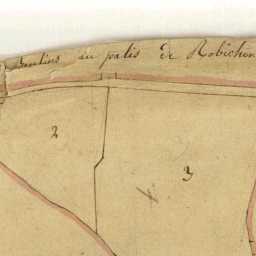 au palis de Robichon
2
3